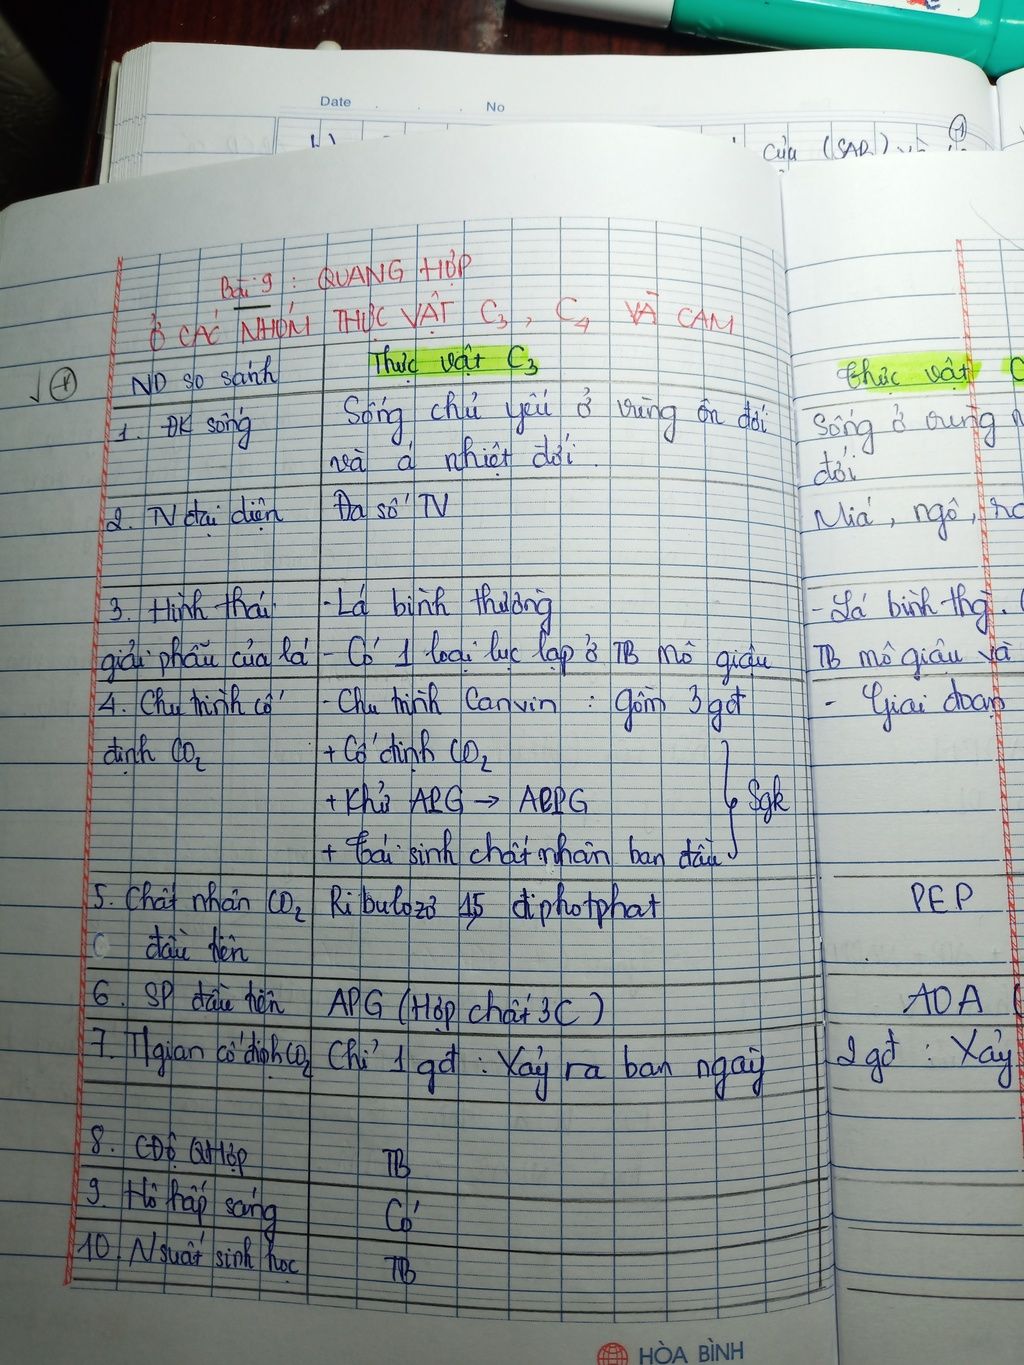 Date No
của (SAD) và
Bài 9 : QUANG HỢP
Ở CÁC NHÓM THỰC VẬT C3, C4 VÀ CAM
ND so sánh Thực vật C3 thực vật C
1. ĐK sống Sống chủ yếu ở vùng ôn đới Sống ở vùng
và á nhiệt đới. đới
2. TV đại diện Đa số TV Mía, ngô,
3. Hình thái -Lá bình thường -Lá bình thg.
giải phẫu của lá - Có 1 loại lục lạp ở TB mô giậu TB mô giậu và
4. Chu trình cố - Chu trình Canvin : gồm 3 gđ - Giai đoạn
định CO2 + Cố định CO2
+ Khử APG → AlPG Sgk
+ tái sinh chất nhận ban đầu
5. Chất nhận CO2 Ribulozơ 1,5 điphotphat PEP
đầu tiên
6. SP đầu tiên APG (Hợp chất 3C) AOA (
7. Tgian cố định CO2 Chỉ 1 gđ : Xảy ra ban ngày 2 gđ : Xảy
8. CĐộ QHợp TB
9. Hô hấp sáng Có
10. Nsuất sinh học TB
HÒA BÌNH